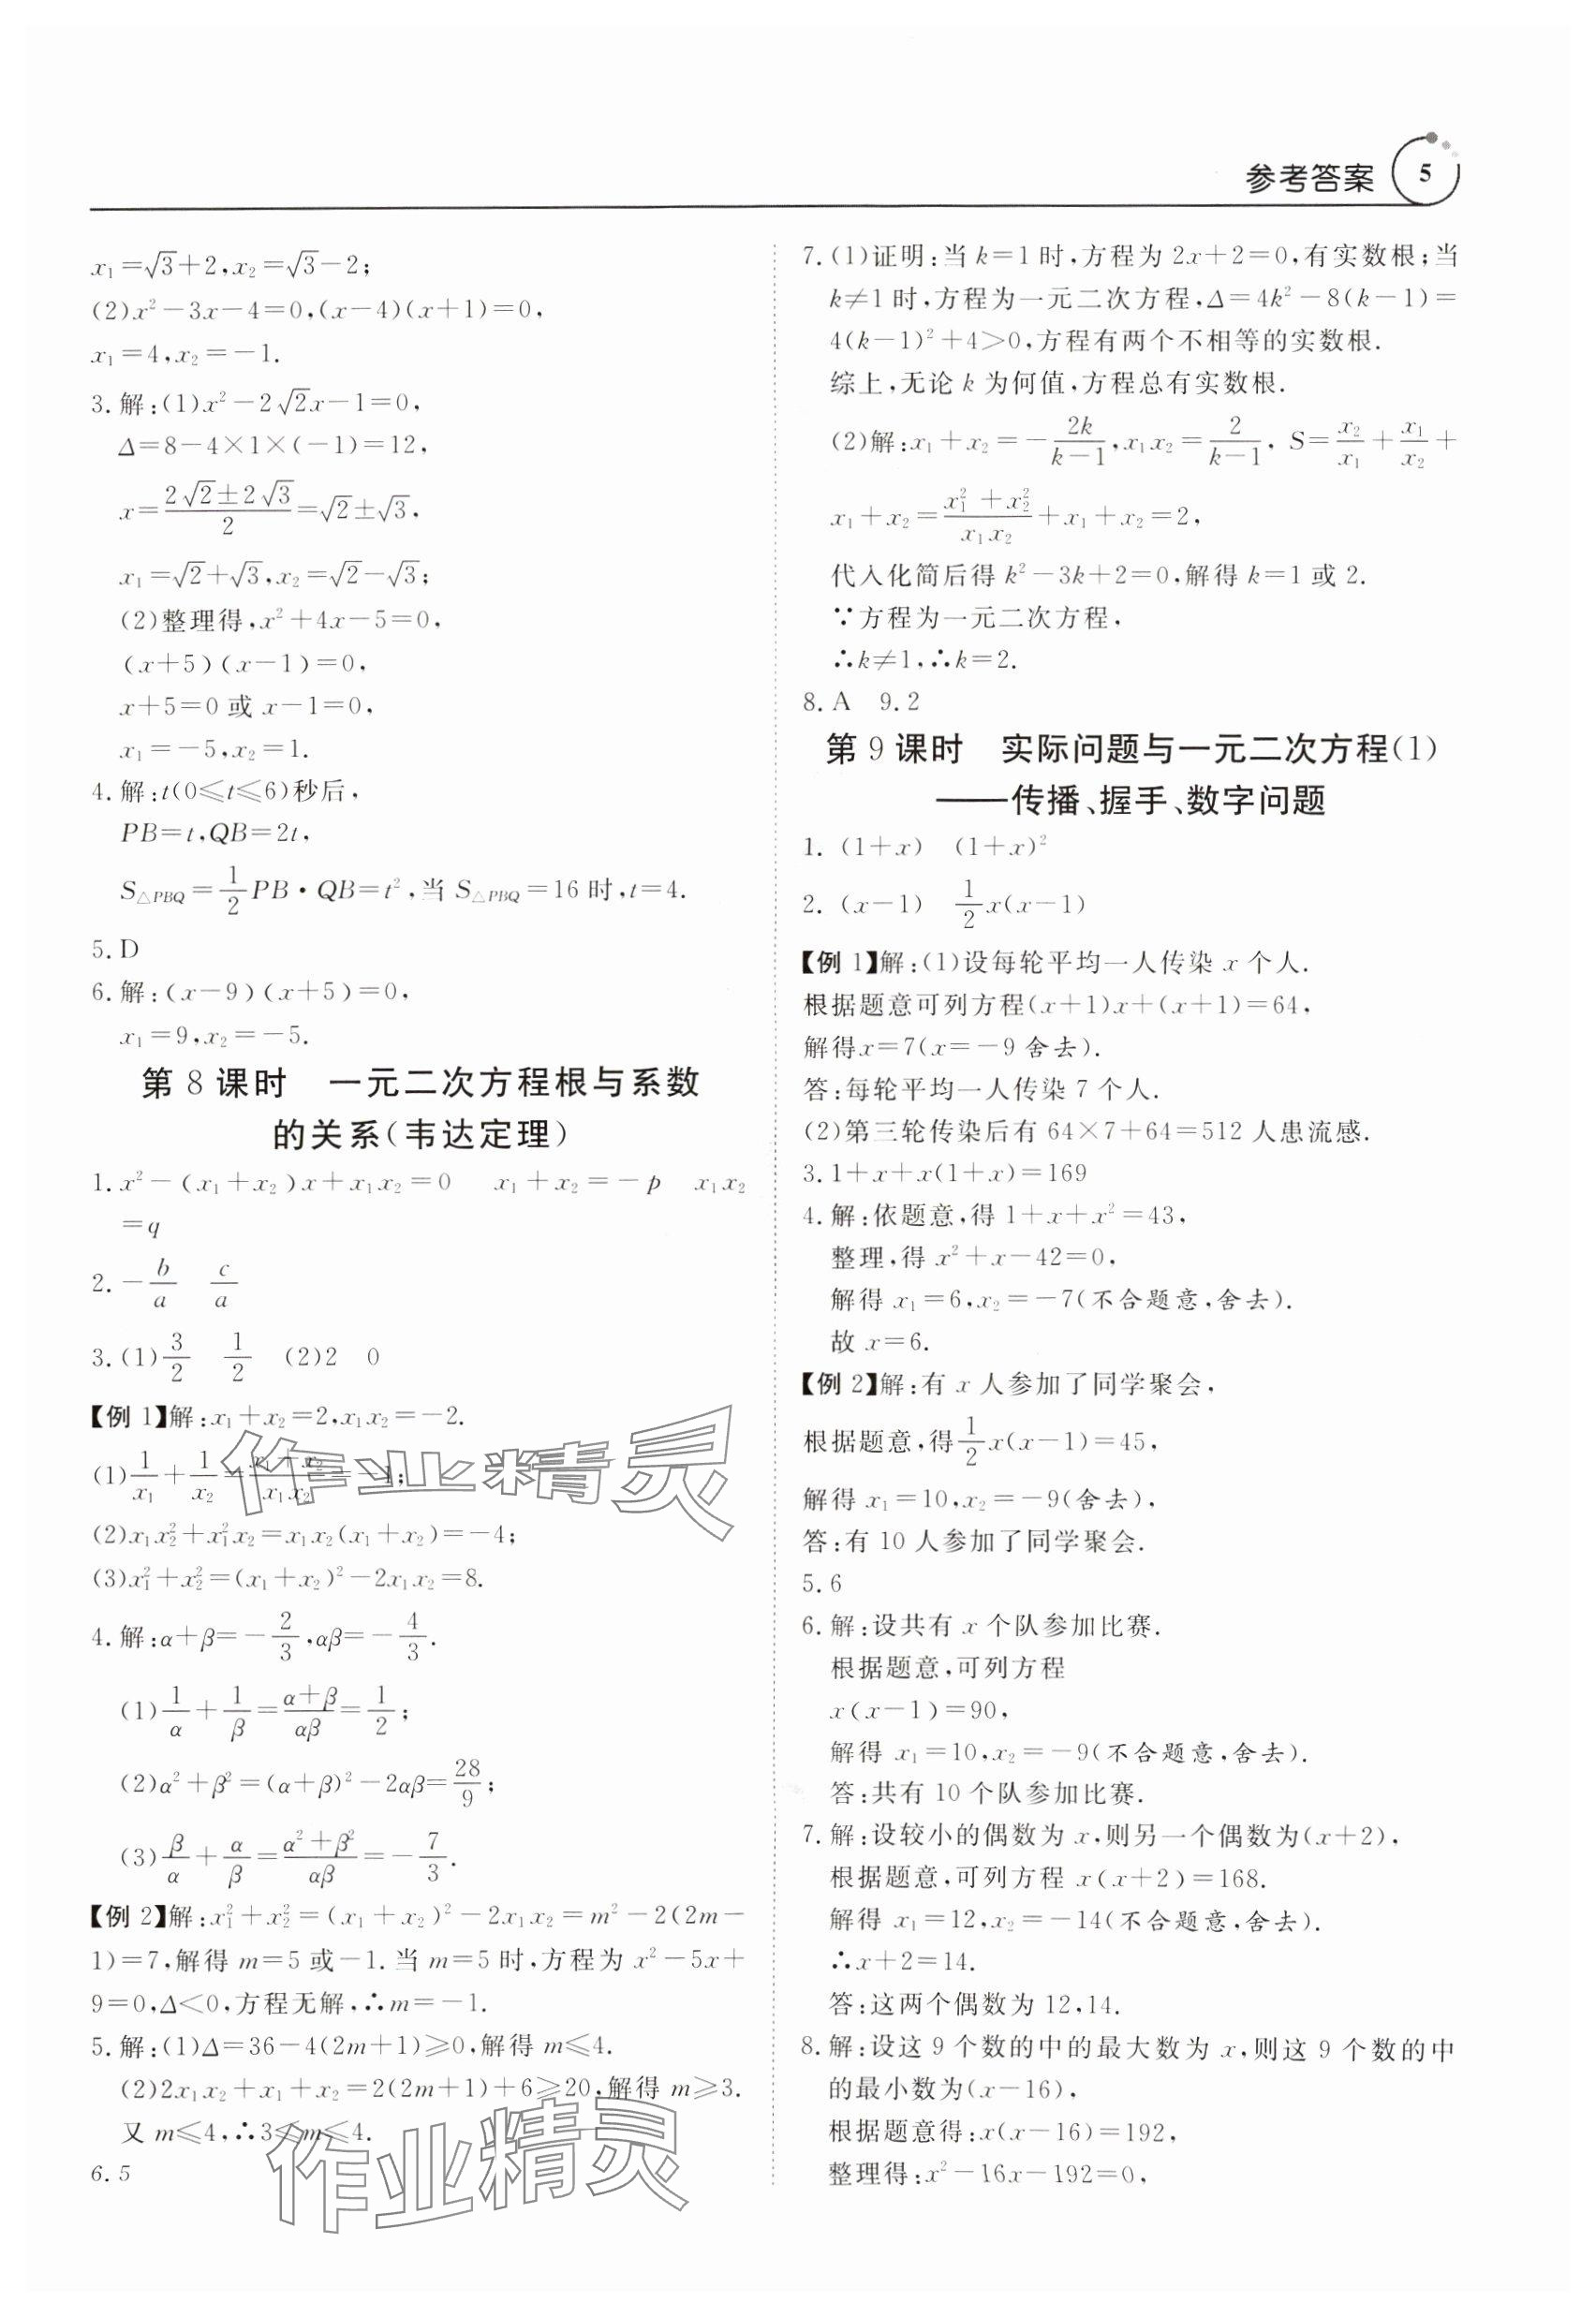 参考答案 5
x₁=√3+2,x₂=√3-2;
(2)x²-3x-4=0,(x-4)(x+1)=0,
x₁=4,x₂=-1.
3.解:(1)x²-2√2x-1=0,
Δ=8-4×1×(-1)=12,
x=(2√2±2√3)/2=√2±√3,
x₁=√2+√3,x₂=√2-√3;
(2)整理得,x²+4x-5=0,
(x+5)(x-1)=0,
x+5=0 或 x-1=0,
x₁=-5,x₂=1.
4.解:t(0≤t≤6)秒后,
PB=t,QB=2t,
S△PBQ=1/2 PB·QB=t²,当 S△PBQ=16 时,t=4.
5.D
6.解:(x-9)(x+5)=0,
x₁=9,x₂=-5.
第 8 课时 一元二次方程根与系数
的关系(韦达定理)
1.x²-(x₁+x₂)x+x₁x₂=0 x₁+x₂=-p x₁x₂
=q
2.-b/a c/a
3.(1)3/2 1/2 (2)2 0
【例 1】解:x₁+x₂=2,x₁x₂=-2.
(1)1/x₁+1/x₂=(x₁+x₂)/(x₁x₂)=-1;
(2)x₁x₂²+x₁²x₂=x₁x₂(x₁+x₂)=-4;
(3)x₁²+x₂²=(x₁+x₂)²-2x₁x₂=8.
4.解:α+β=-2/3,αβ=-4/3.
(1)1/α+1/β=(α+β)/(αβ)=1/2;
(2)α²+β²=(α+β)²-2αβ=28/9;
(3)β/α+α/β=(α²+β²)/(αβ)=-7/3.
【例 2】解:x₁²+x₂²=(x₁+x₂)²-2x₁x₂=m²-2(2m-
1)=7,解得 m=5 或-1.当 m=5 时,方程为 x²-5x+
9=0,Δ<0,方程无解,∴m=-1.
5.解:(1)Δ=36-4(2m+1)≥0,解得 m≤4.
(2)2x₁x₂+x₁+x₂=2(2m+1)+6≥20,解得 m≥3.
又 m≤4,∴3≤m≤4.
6.5
7.(1)证明:当 k=1 时,方程为 2x+2=0,有实数根;当
k≠1 时,方程为一元二次方程,Δ=4k²-8(k-1)=
4(k-1)²+4>0,方程有两个不相等的实数根.
综上,无论 k 为何值,方程总有实数根.
(2)解:x₁+x₂=-2k/(k-1),x₁x₂=2/(k-1), S=x₂/x₁+x₁/x₂+
x₁+x₂=(x₁²+x₂²)/(x₁x₂)+x₁+x₂=2,
代入化简后得 k²-3k+2=0,解得 k=1 或 2.
∵方程为一元二次方程,
∴k≠1,∴k=2.
8.A 9.2
第 9 课时 实际问题与一元二次方程(1)
——传播、握手、数字问题
1.(1+x) (1+x)²
2.(x-1) 1/2 x(x-1)
【例 1】解:(1)设每轮平均一人传染 x 个人.
根据题意可列方程(x+1)x+(x+1)=64,
解得x=7(x=-9 舍去).
答:每轮平均一人传染 7 个人.
(2)第三轮传染后有 64×7+64=512 人患流感.
3.1+x+x(1+x)=169
4.解:依题意,得 1+x+x²=43,
整理,得 x²+x-42=0,
解得 x₁=6,x₂=-7(不合题意,舍去).
故 x=6.
【例 2】解:有 x 人参加了同学聚会,
根据题意,得1/2 x(x-1)=45,
解得 x₁=10,x₂=-9(舍去),
答:有 10 人参加了同学聚会.
5.6
6.解:设共有 x 个队参加比赛.
根据题意,可列方程
x(x-1)=90,
解得 x₁=10,x₂=-9(不合题意,舍去).
答:共有 10 个队参加比赛.
7.解:设较小的偶数为 x,则另一个偶数为(x+2),
根据题意,可列方程 x(x+2)=168.
解得 x₁=12,x₂=-14(不合题意,舍去).
∴x+2=14.
答:这两个偶数为 12,14.
8.解:设这 9 个数的中的最大数为 x,则这 9 个数的中
的最小数为(x-16),
根据题意得:x(x-16)=192,
整理得:x²-16x-192=0,
作业精灵
作业精灵